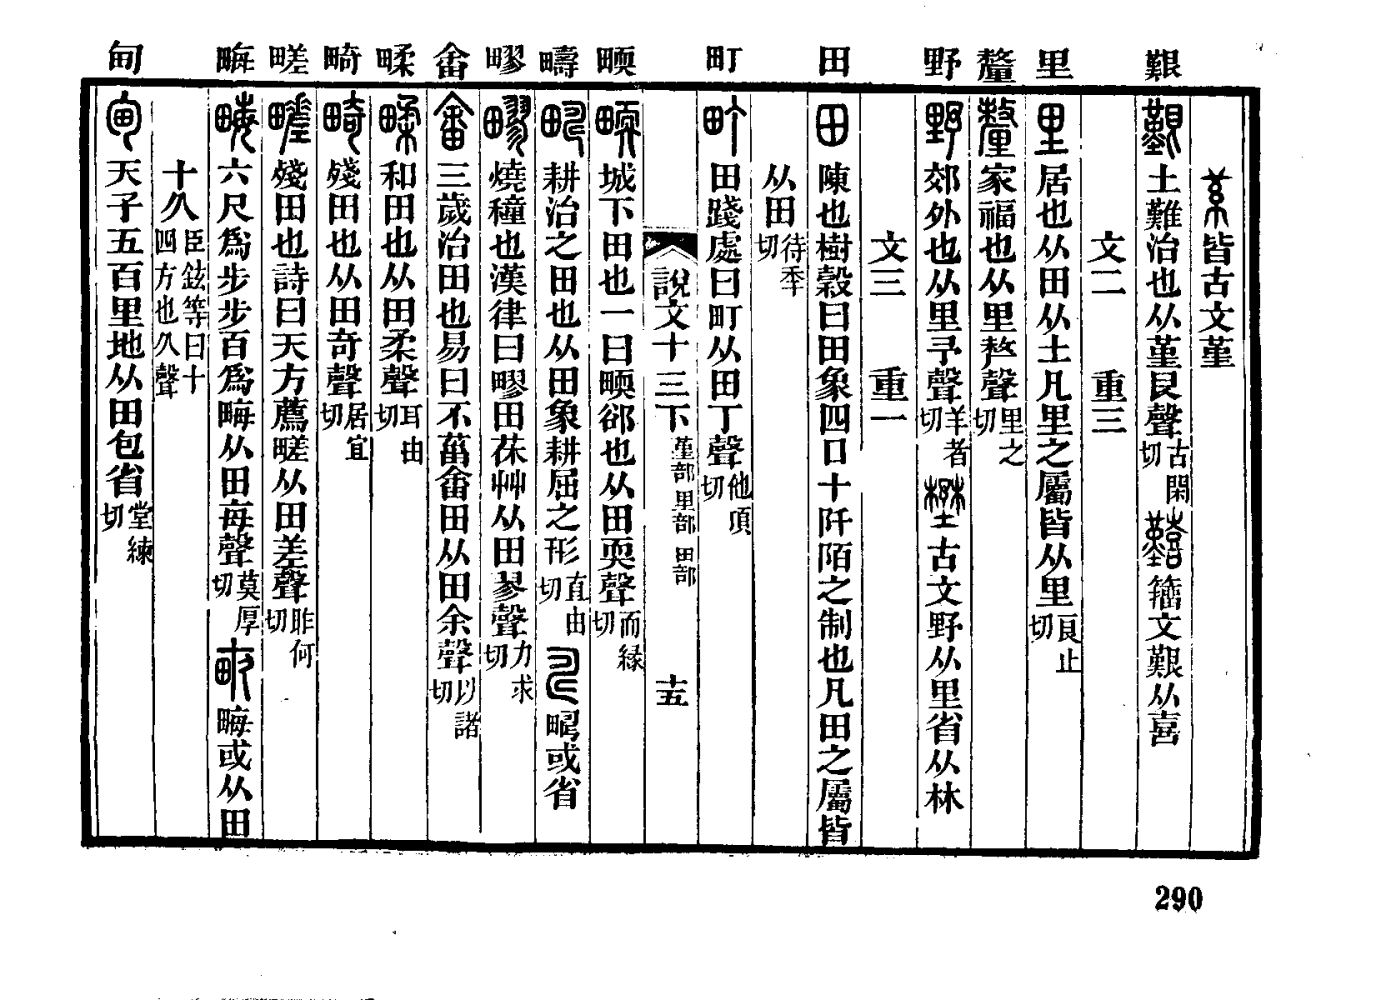 艱 里 釐 野 田 町 畹 疇 疁 畬 鍒 畸 𤲶 畮 甸
皆古文堇
土難治也从堇艮聲古閑切 籒文艱从喜
文二 重三
居也从田从土凡里之屬皆从里良止切
家福也从里𠩺聲里之切
郊外也从里予聲羊者切 古文野从里省从林
文三 重一
田 陳也樹穀曰田象四口十阡陌之制也凡田之屬皆
从田待秊切
田踐處曰町从田丁聲他頂切
說文十三下 堇部 里部 田部 十五
城下田也一曰畹郤也从田耎聲而緣切
耕治之田也从田象耕屈之形直由切 疇或省
燒穜也漢律曰疁田茠艸从田翏聲力求切
三歲治田也易曰不菑畬田从田余聲以諸切
和田也从田柔聲耳由切
殘田也从田奇聲居宜切
殘田也詩曰天方薦𤲶从田差聲昨何切
六尺爲步步百爲畮从田每聲莫厚切 畮或从田
十久臣鉉等曰十四方也久聲
天子五百里地从田包省堂練切
290